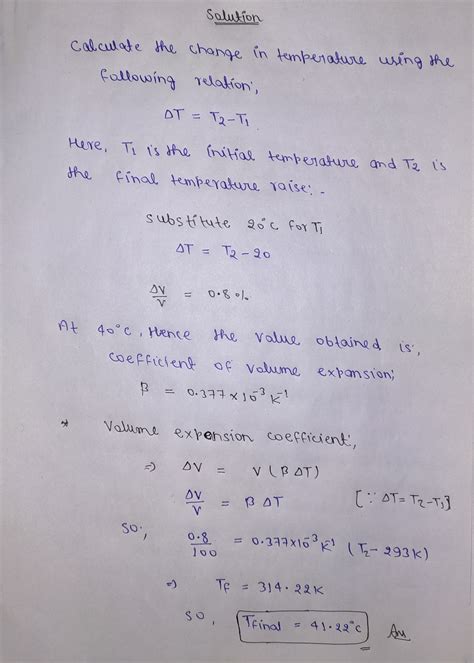 Solution
Calculate the change in temperature using the
following relation;
ΔT = T2-T1
Here, T1 is the initial temperature and T2 is
the final temperature raise:-
Substitute 20°C for T1
ΔT = T2 - 20
ΔV/V = 0.8%
At 40°C, Hence the value obtained is,
coefficient of volume expansion;
β = 0.377 × 10^-3 K^-1
* Volume expension coefficient,
⇒ ΔV = V (β ΔT)
ΔV/V = β ΔT [∵ ΔT = T2-T1]
So, 0.8/100 = 0.377×10^-3 K^-1 (T2 - 293K)
⇒ Tf = 314.22K
So, Tfinal = 41.22°C Ans